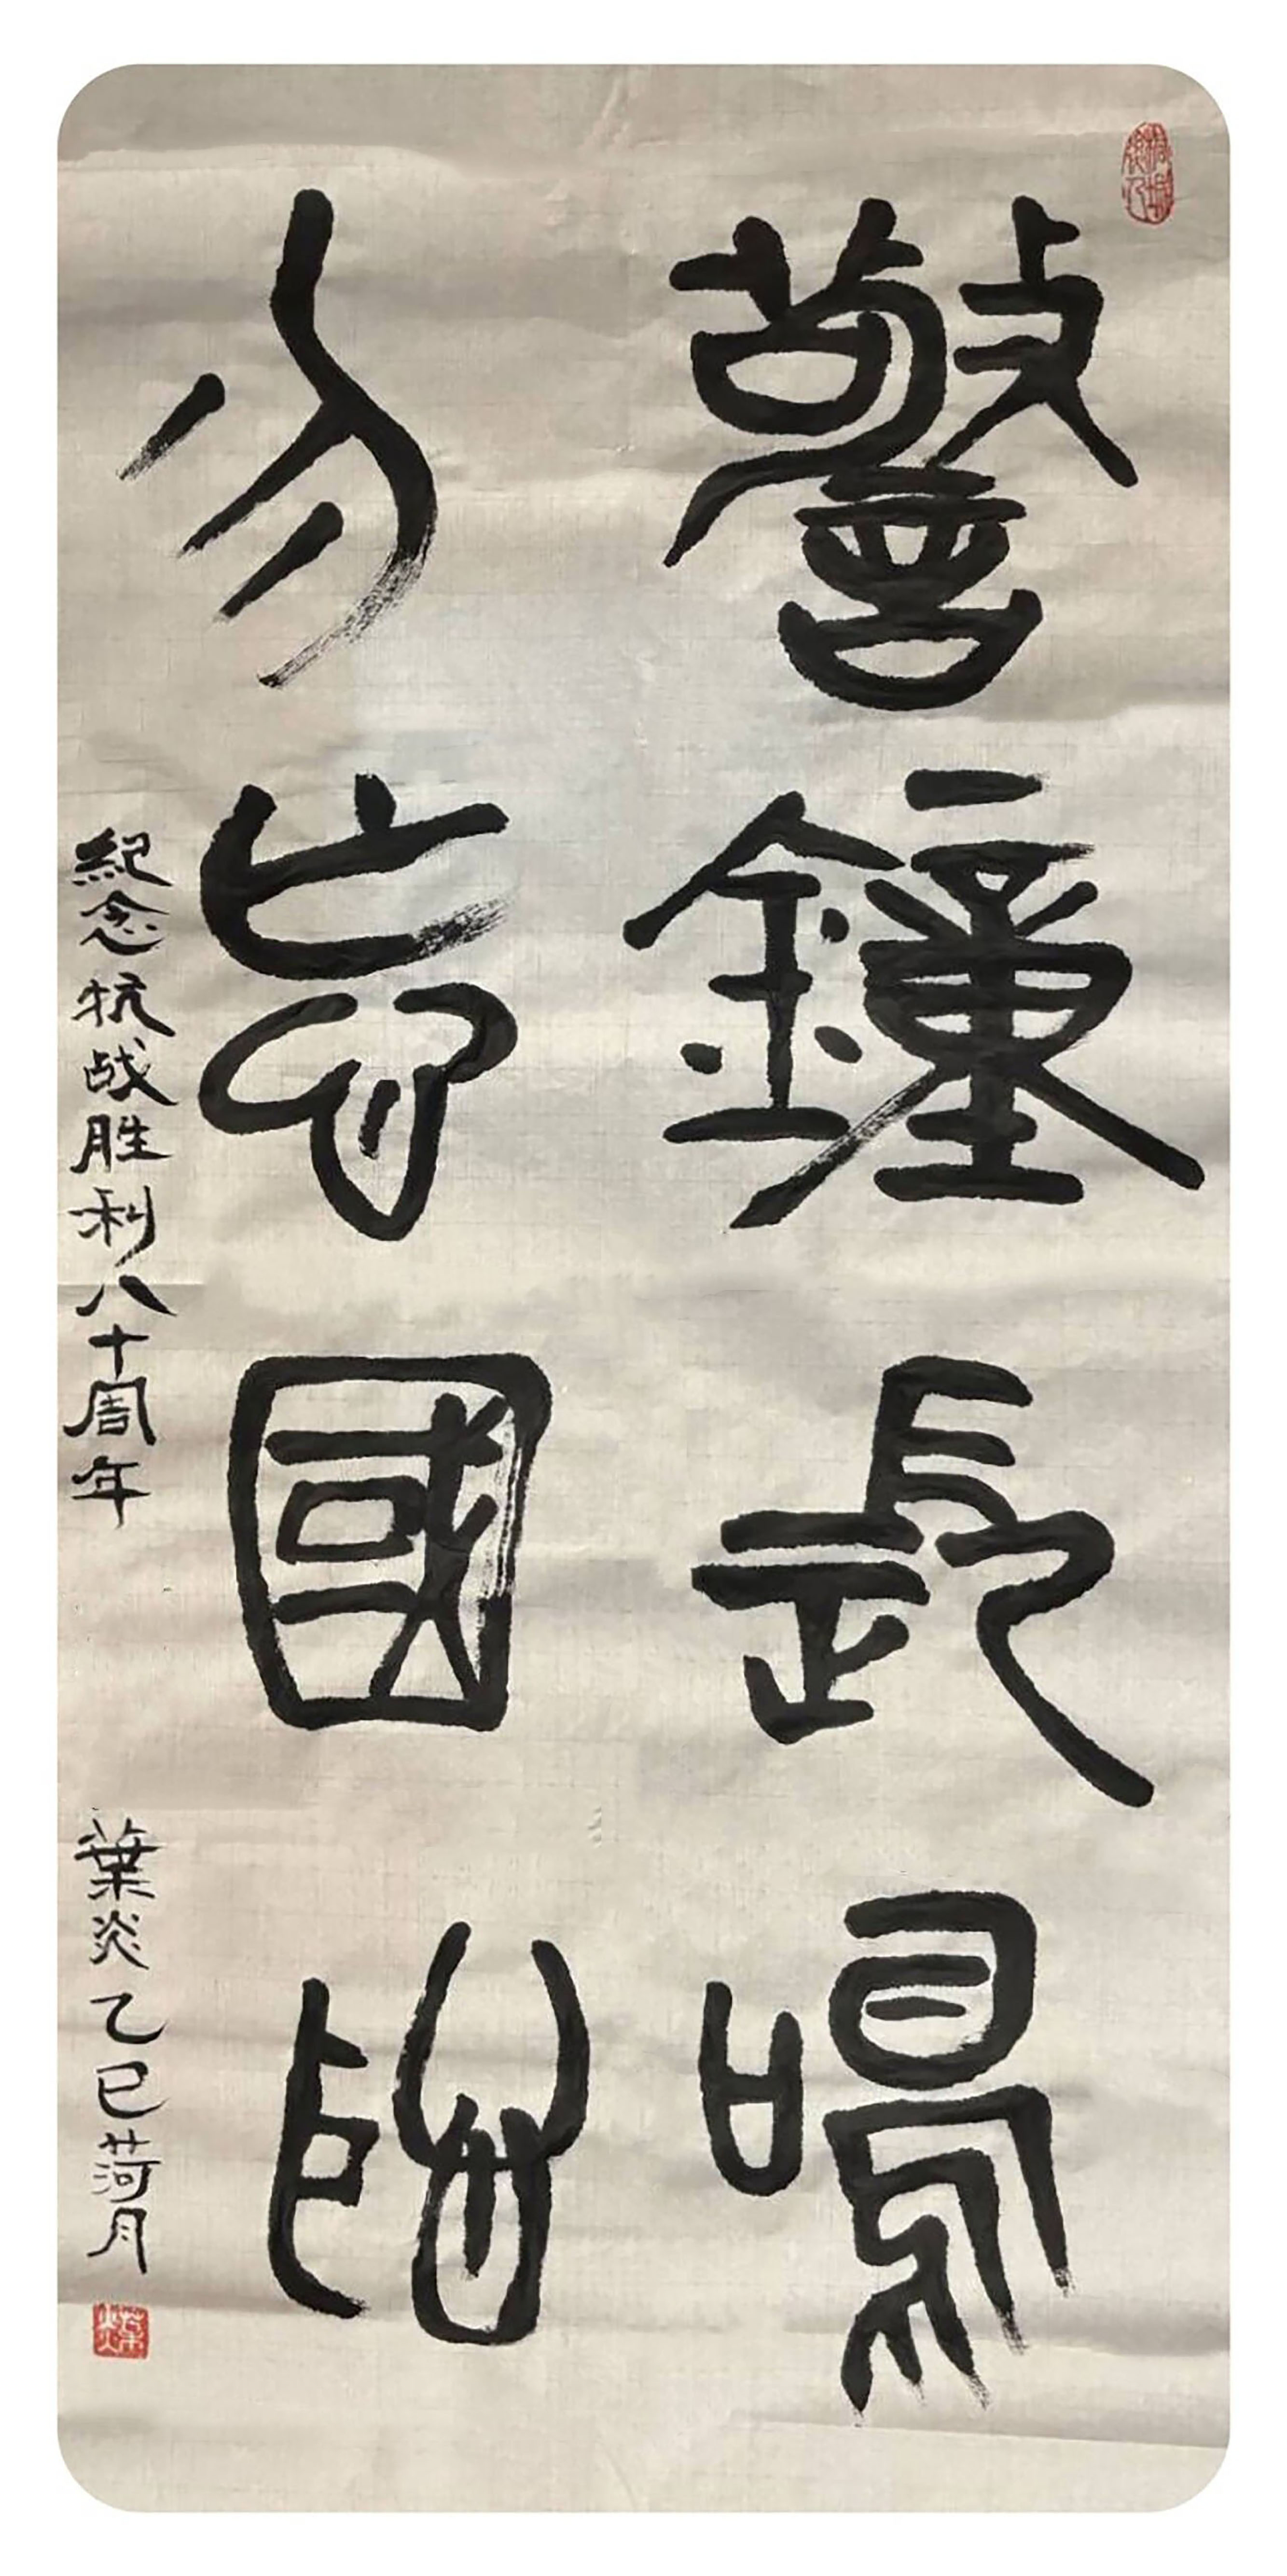 警鐘長鳴
勿忘國恥
紀念抗战胜利八十周年
葉炎乙巳荷月
葉炎